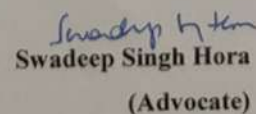 Swadeep Singh Hora
(Advocate)